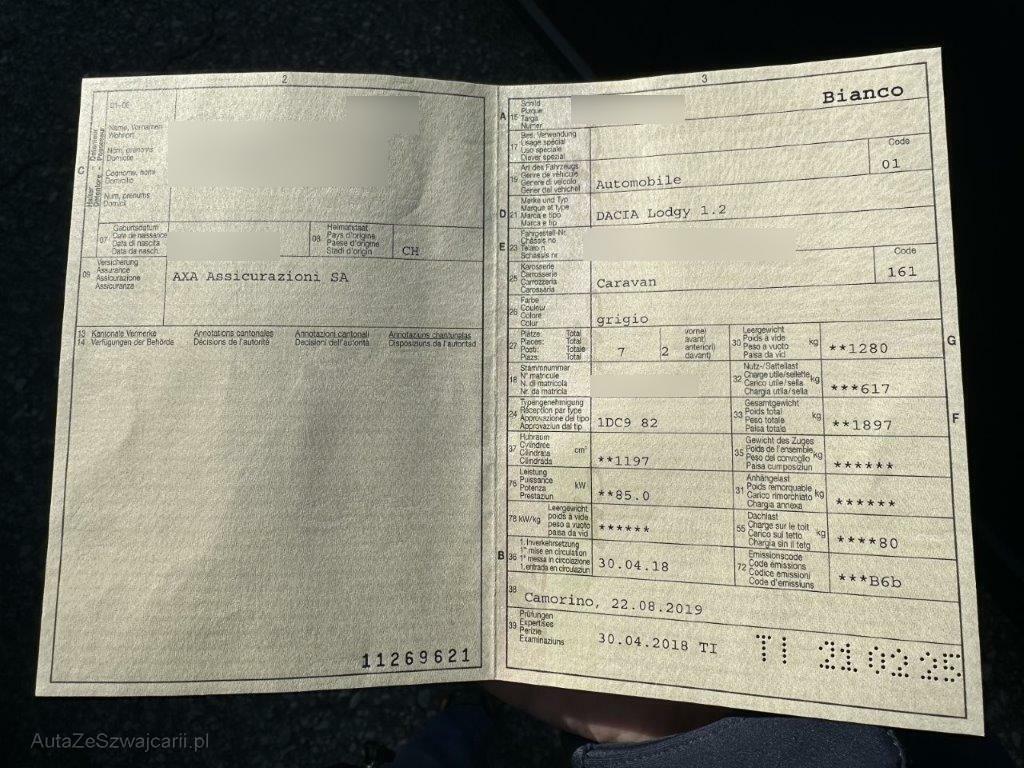 2
01-06
Name, Vornamen
Wohnort
Nom, prénoms
Domicile
Cognome, nomi
Domicilio
Num, prenums
Domicil
C
Halter
Détenteur - Detentore
07
Geburtsdatum
Date de naissance
Data di nascita
Data da nasch.
08
Heimatstaat
Pays d'origine
Paese d'origine
Stadi d'origin
CH
09
Versicherung
Assurance
Assicurazione
Assicuranza
AXA Assicurazioni SA
13 Kantonale Vermerke Annotations cantonales Annotazioni cantonali Annotaziuns chantunalas
14 Verfügungen der Behörde Décisions de l'autorité Decisioni dell'autorità Disposiziuns da l'autoritad
11269621
3
Bianco
A 15
Schild
Plaque
Targa
Numer
17
Bes. Verwendung
Usage spécial
Uso speciale
Diever spezial
Code
01
19
Art des Fahrzeugs
Genre de véhicule
Genere di veicolo
Gener dal vehichel
Automobile
D 21
Marke und Typ
Marque et type
Marca e tipo
Marca e tip
DACIA Lodgy 1.2
E 23
Fahrgestell-Nr.
Châssis no
Telaio n.
Schassis nr
25
Karosserie
Carrosserie
Carrozzeria
Carossaria
Caravan
Code
161
26
Farbe
Couleur
Colore
Colur
grigio
27
Plätze: Total
Places: Total
Posti: Totale
Plazs: Total
7
2
vorne)
avant)
anteriori)
davant)
30
Leergewicht
Poids à vide
Peso a vuoto
Paisa da vid
kg
**1280
G
18
Stammnummer
N° matricule
N. di matricola
Nr. da matricla
32
Nutz-/Sattellast
Charge utile/sellette
Carico utile/sella
Chargia utila/sella
kg
***617
24
Typengenehmigung
Réception par type
Approvazione del tipo
Approvaziun dal tip
1DC9 82
33
Gesamtgewicht
Poids total
Peso totale
Paisa totala
kg
**1897
F
37
Hubraum
Cylindrée
Cilindrata
Cilindrada
cm³
**1197
35
Gewicht des Zuges
Poids de l'ensemble
Peso del convoglio
Paisa cumposiziun
kg
******
76
Leistung
Puissance
Potenza
Prestaziun
kW
**85.0
31
Anhängelast
Poids remorquable
Carico rimorchiato
Chargia annexa
kg
******
78 kW/kg
Leergewicht
poids à vide
peso a vuoto
paisa da vid
******
55
Dachlast
Charge sur le toit
Carico sul tetto
Chargia sin il tetg
kg
****80
B 36
1. Inverkehrsetzung
1re mise en circulation
1a messa in circolazione
1. entrada en circulaziun
30.04.18
72
Emissionscode
Code émissions
Codice emissioni
Code d'emissiuns
***B6b
38
Camorino, 22.08.2019
39
Prüfungen
Expertises
Perizie
Examinaziuns
30.04.2018 TI
TI 21 02 25
AutaZeSzwajcarii.pl